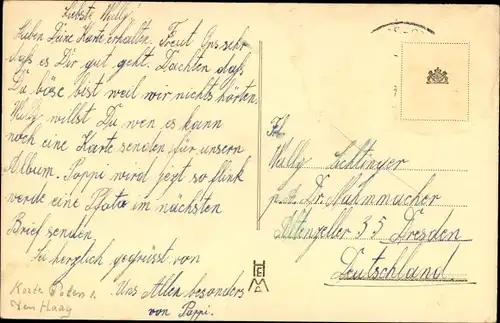 Liebste Willy!
Haben Deine Karte erhalten. Freut Uns sehr
daß es Dir gut geht. Dachten daß
Du böse bist weil wir nichts hörten.
Willy willst Du wen es kann
noch eine Karte senden für unsern
Album. Pappi wird jezt so flink
werde eine Photo im nächsten
Brief senden.
Sei herzlich gegrüsst von
Uns Allen besonders
von Pappi.
Karte
Den Haag
HEMA
Willy Lichtinger
p. A. Dr. Muhmmacher
Altenzeller 35 Dresden
Deutschland